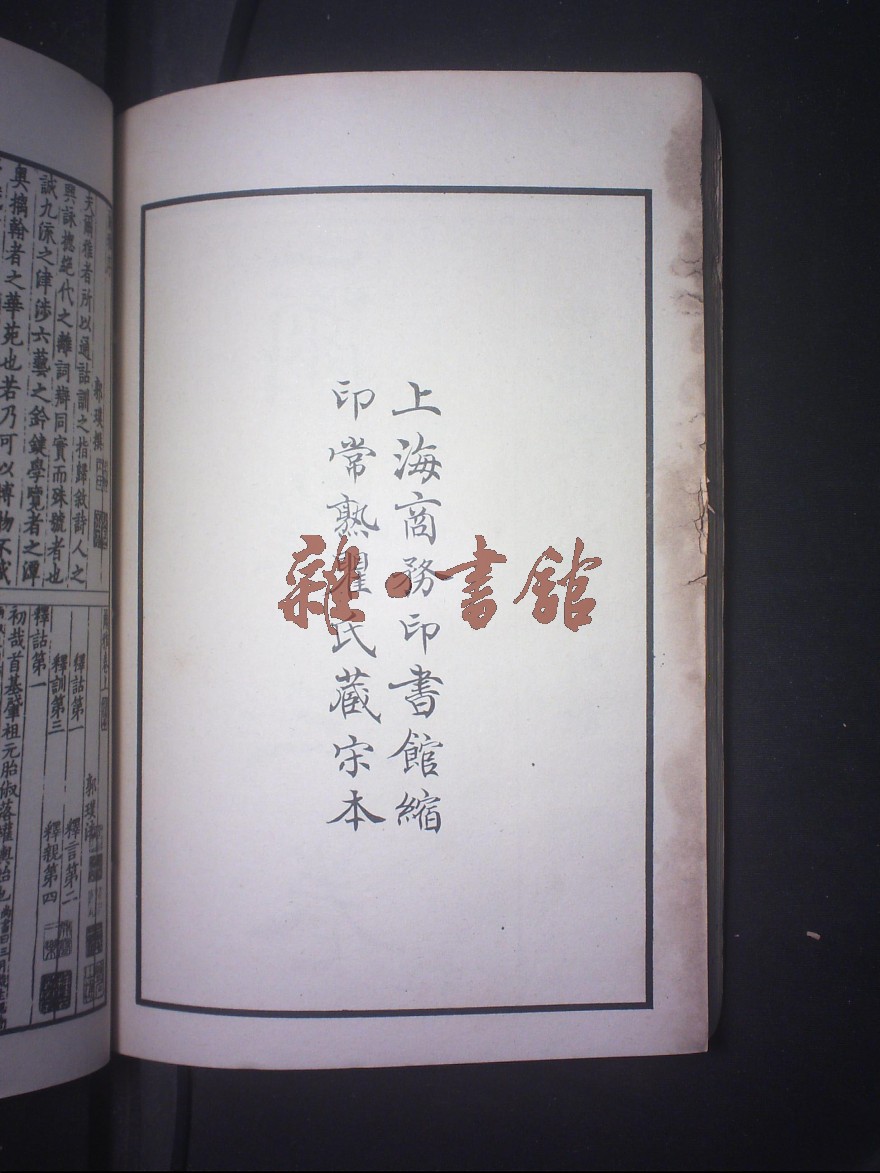 上海商務印書館縮
印常熟瞿氏藏宋本
雜·書館
郭璞撰
夫爾雅者所以通詁訓之指歸敘詩人之
興詠揔絕代之離詞辯同實而殊號者也
誠九流之津涉六藝之鈐鍵學覽者之潭
奧摛翰者之華苑也若乃可以博物不惑
郭璞注
釋詁第一
釋言第二
釋訓第三
釋親第四
釋詁第一
初哉首基肇祖元胎俶落權輿始也